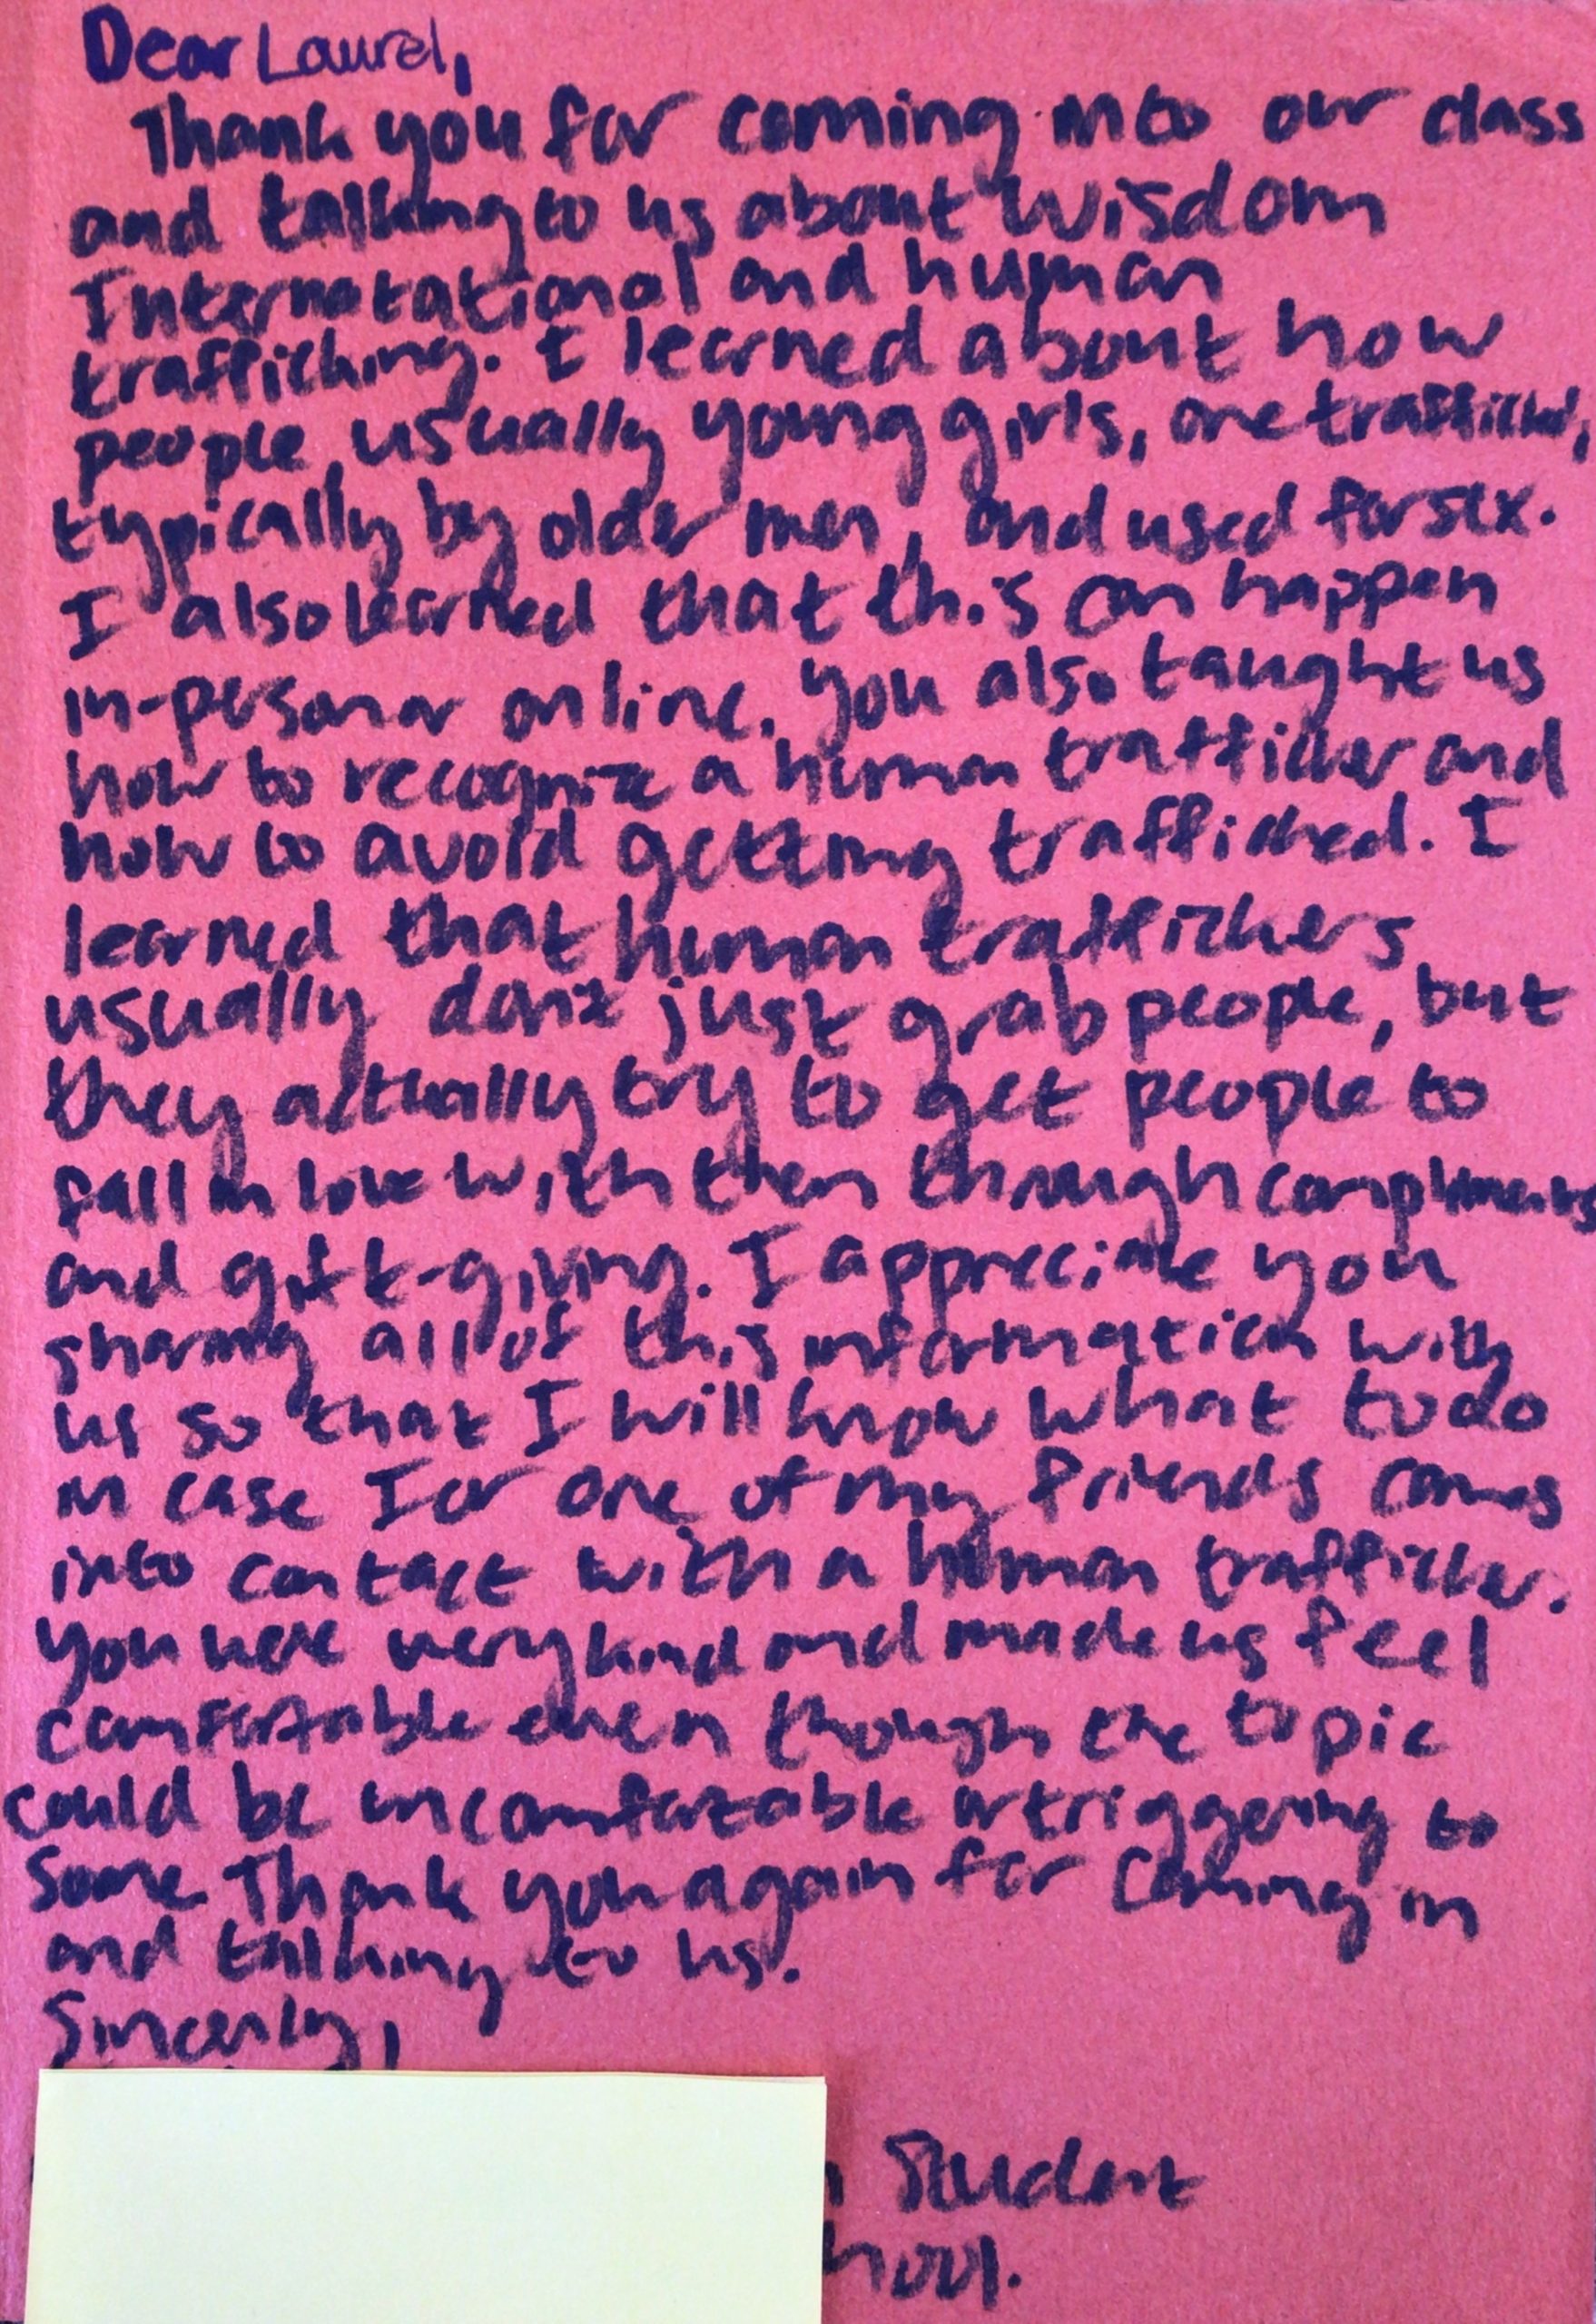 Dear Laurel,
Thank you for coming into our class
and talking to us about Wisdom
Internatational and human
trafficking. I learned about how
people, usually young girls, are trafficked,
typically by older men, and used for sex.
I also learned that this can happen
in-person or online. You also taught us
how to recognize a human trafficker and
how to avoid getting trafficked. I
learned that human traffickers
usually don't just grab people, but
they actually try to get people to
fall in love with them through compliments
and gift-giving. I appreciate you
sharing all of this information with
us so that I will know what to do
in case I or one of my friends comes
into contact with a human trafficker.
You were very kind and made us feel
comfortable even though the topic
could be uncomfortable or triggering to
some. Thank you again for coming in
and talking to us.
Sincerly,
Student